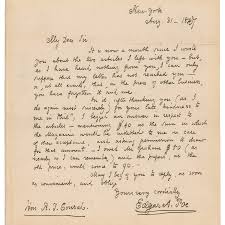 New-York
Aug. 31 — 1847
My Dear Sir
It is now a month since I wrote
you about the two articles I left with you — but,
as I have heard nothing from you, I can only
suppose that my letter has not reached you —
or, at all events, that, in the press of other business,
you have forgotten it and me.
In it, after thanking you (as I
do again most sincerely) for your late kindness to
me in this, I begged an answer in respect to
the articles — mentioning $40 as the sum in which
the Magazine would be indebted to me in case
of their acceptance, and asking permission to draw
for that amount. I owed Mr Graham $50 (as
nearly as I can remember) and the papers, at the
old price, would come to 90.
May I beg of you to reply, as soon
as convenient, and oblige
Yours very cordially
Edgar A. Poe
R. T. Conrad.